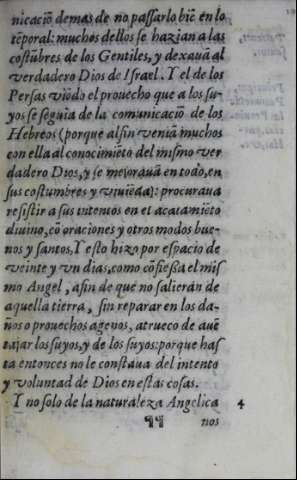 nicaciõ demas de no passarlo biẽ en lo
tẽporal: muchos dellos se hazian a las
costũbres de los Gentiles, y dexauã al
verdadero Dios de Israel. Y el de los
Persas viẽdo el prouecho que a los su-
yos se seguia de la comunicaciõ de los
Hebreos (porque alfin veniã muchos
con ella al conocimiẽto del mismo ver
dadero Dios, y se mejorauã en todo, en
sus costumbres y viuiẽda): procuraua
resistir a sus intentos en el acatamiẽto
diuino, cõ oraciones y otros modos bue-
nos y santos. Y esto hizo por espacio de
veinte y vn dias, como cõfiessa el mis
mo Angel, afin de que no salieran de
aquella tierra, sin reparar en los da-
ños o prouechos agenos, atrueco de auẽ
tajar los suyos, y de los suyos: porque has
ta entonces no le constaua del intento
y voluntad de Dios en estas cosas.
Y no solo de la naturaleza Angelica 4
¶¶ nos